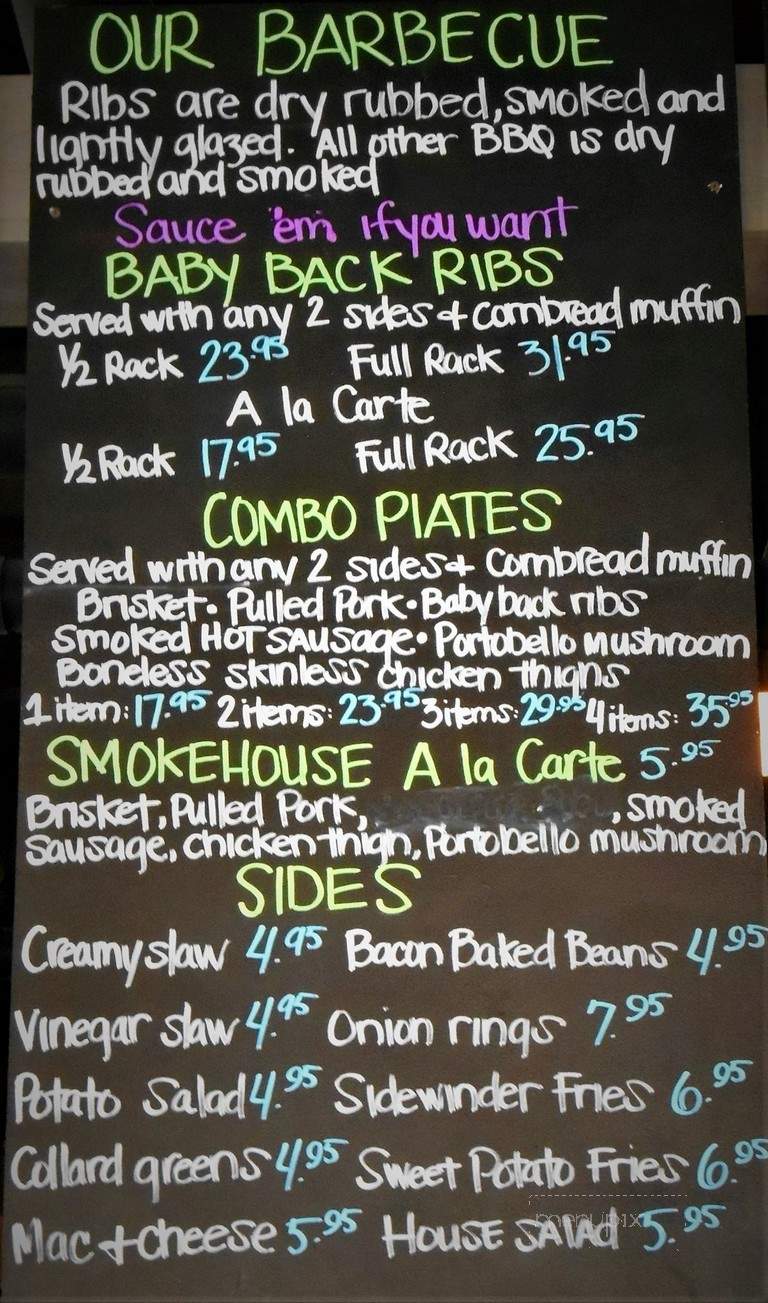 OUR BARBECUE
Ribs are dry rubbed, smoked and
lightly glazed. All other BBQ is dry
rubbed and smoked
Sauce 'em if you want
BABY BACK RIBS
Served with any 2 sides + cornbread muffin
1/2 Rack 23.95 Full Rack 31.95
A la Carte
1/2 Rack 17.95 Full Rack 25.95
COMBO PLATES
Served with any 2 sides + Cornbread muffin
Brisket • Pulled Pork • Baby back ribs
Smoked HOT SAUSAGE • Portobello mushroom
Boneless skinless chicken thighs
1 item: 17.95 2 items: 23.95 3 items: 29.95 4 items: 35.95
SMOKEHOUSE A la Carte 5.95
Brisket, Pulled Pork, , smoked
sausage, chicken thigh, Portobello mushroom
SIDES
Creamy slaw 4.95 Bacon Baked Beans 4.95
Vinegar slaw 4.95 Onion rings 7.95
Potato Salad 4.95 Sidewinder Fries 6.95
Collard greens 4.95 Sweet Potato Fries 6.95
Mac + cheese 5.95 House SALAD 5.95
menupix